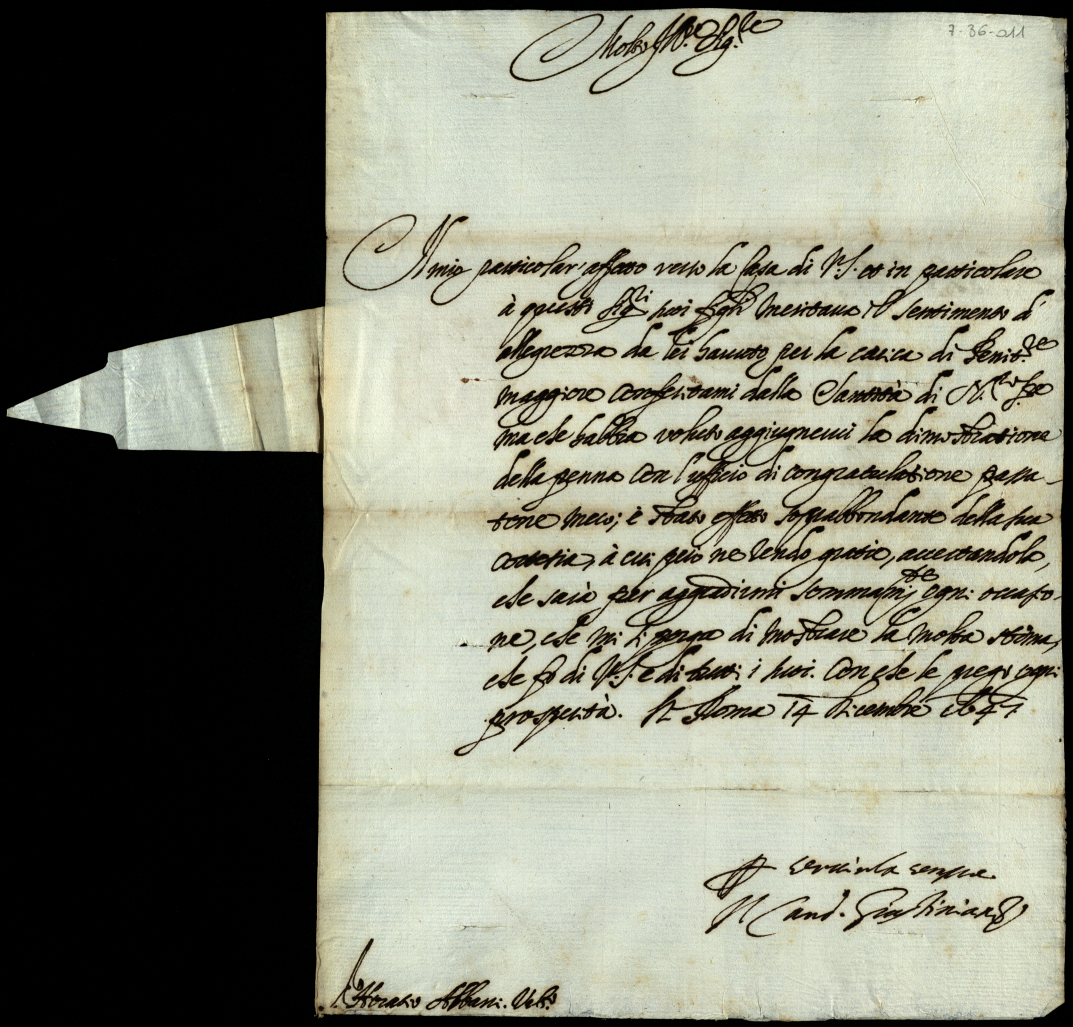 7-36-011
Molto Ill.re Sig.re
Il mio particolar affetto verso la Casa di V.S. et in particolare
à questi Sig.ri suoi figli meritava il sentimento d'
allegrezza da lei havuto per la carica di Penit.re
maggiore conferitami dalla Santità di N.tro Sre
ma che habbia voluto aggiugnervi la dimostratione
della penna con l'ufficio di congratulatione passa-
tone meco; è stato effetto soprabbondante della sua
cortesia, à cui però ne rendo gratie, accertandola,
che sarà per aggradirmi sommam.te ogni occasio-
ne, che mi si porga di mostrare la molta stima,
che fò di V.S. e di tutti i suoi. Con che le prego ogni
prosperità. Di Roma 14 Dicembre 1647
Per servirla sempre
Il Card. Giustiniani
S. Horatio Albani. Urb.o